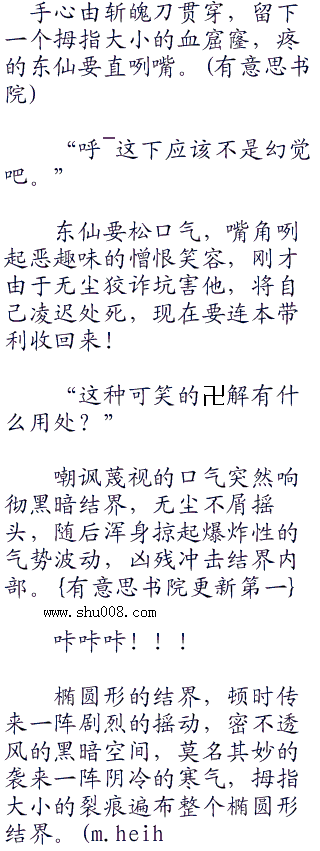 手心由斩魄刀贯穿，留下
一个拇指大小的血窟窿，疼
的东仙要直咧嘴。(有意思书
院)
“呼¯这下应该不是幻觉
吧。”
东仙要松口气，嘴角咧
起恶趣味的憎恨笑容，刚才
由于无尘狡诈坑害他，将自
己凌迟处死，现在要连本带
利收回来！
“这种可笑的卍解有什
么用处？”
嘲讽蔑视的口气突然响
彻黑暗结界，无尘不屑摇
头，随后浑身掠起爆炸性的
气势波动，凶残冲击结界内
部。{有意思书院更新第一}
www.shu008.com
咔咔咔！！！
椭圆形的结界，顿时传
来一阵剧烈的摇动，密不透
风的黑暗空间，莫名其妙的
袭来一阵阴冷的寒气，拇指
大小的裂痕遍布整个椭圆形
结界。(m.heih